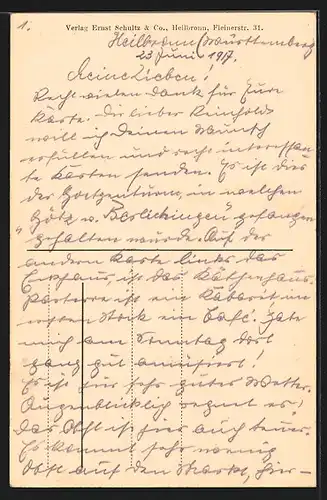 1.
Verlag Ernst Schultz & Co., Heilbronn, Fleinerstr. 31.
Heilbronn (Württemberg
23 Juni 1917.
Meine Lieben!
Recht vielen Dank für Eure
Karte. Dir lieber Reinhold
will ich deinen Wunsch
erfüllen und recht interessan-
te Karten senden. Es ist dies
der Götzenturm, in welchen
Götz v. Berlichingen gefangen
gehalten wurde. Auf der
andern Karte links das
Eckhaus, ist das Käthchenhaus.
Parterre ist ein Kabaret, im
ersten Stock ein Café. Habe
mich am Sonntag dort
ganz gut amüsiert!
Es ist hier sehr gutes Wetter.
Augenblicklich regnet es!
Das Obst ist hier auch teuer.
Es kommt sehr wenig
Obst auf den Markt, hier-